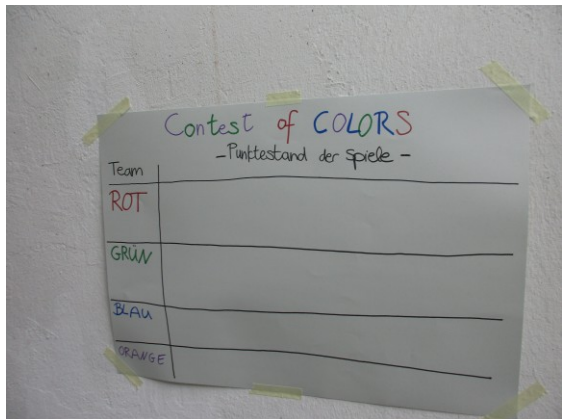 Contest of COLORS
- Punktestand der Spiele -
Team
ROT
GRÜN
BLAU
ORANGE